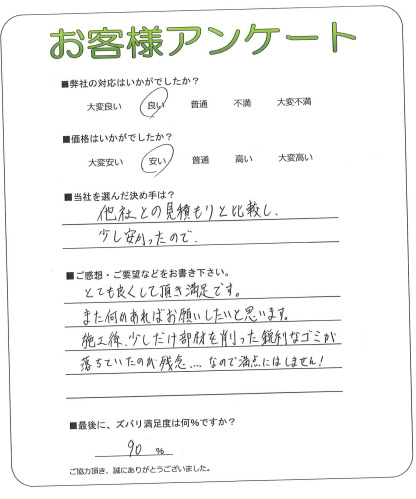 お客様アンケート
■弊社の対応はいかがでしたか？
大変良い 良い 普通 不満 大変不満
■価格はいかがでしたか？
大変安い 安い 普通 高い 大変高い
■当社を選んだ決め手は？
他社との見積もりと比較し、
少し安かったので、
■ご感想・ご要望などをお書き下さい。
とても良くして頂き満足です。
また何かあればお願いしたいと思います。
施工後、少しだけ部材を削った鋭利なゴミが
落ちていたのが残念…。なので満点にはしません！
■最後に、ズバリ満足度は何％ですか？
90 ％
ご協力頂き、誠にありがとうございました。